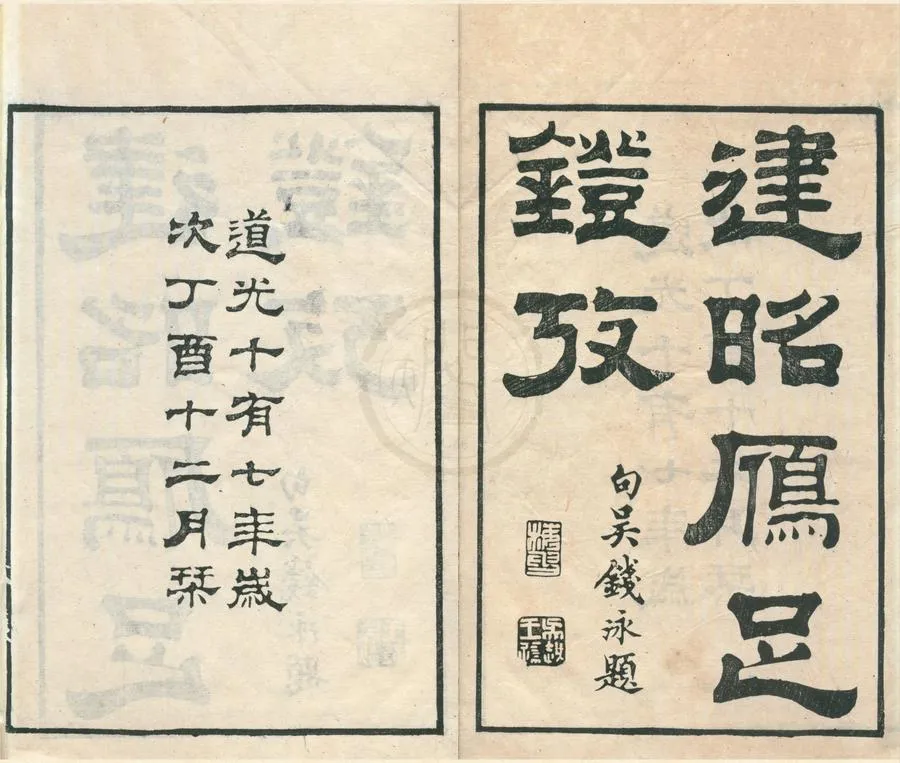 建昭鴈足
鐙攷
句吴錢泳題
梅華
道光十有七年歲
次丁酉十二月栞